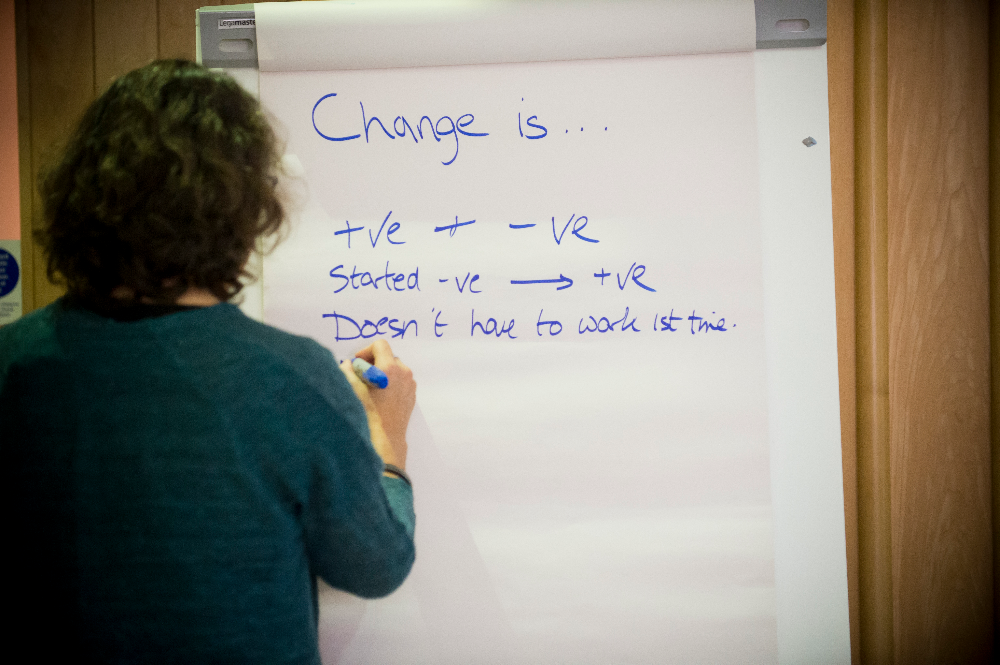 Legamaster
Change is...
+ve + -ve
Started -ve → +ve
Doesn't have to work 1st time.